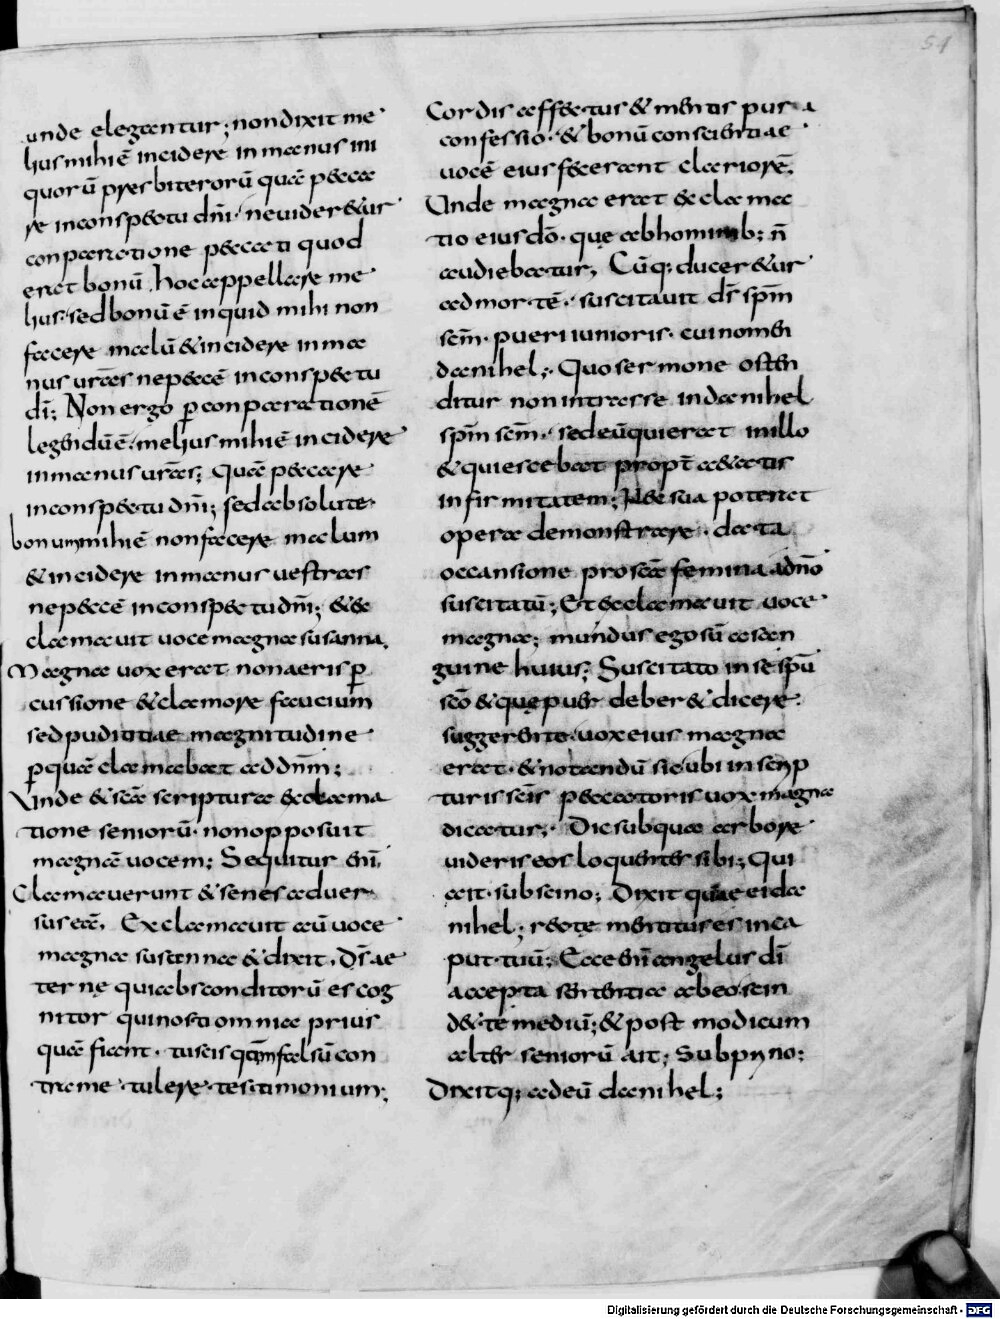 51
unde elegantur; non dixit me
lius mihi ē incidere in manus ini
quorū presbiterorū quā pecca
re in conspectu dn̄i· ne videretur
conparatione peccati quod
erat bonū, hoc appellare me
lius· sed bonū ē inquid mihi non
facere malū & incidere in ma
nus urās ne peccē in conspectu
dī; Non ergo p̱ conparationē
legendū ē· melius mihi ē incidere
in manus urās; quā peccare
in conspectu dn̄i; sed absolute·
bonum mihi ē non facere malum
& incidere in manus uestras
ne peccē in conspectu dn̄i; & ex
clamauit uoce magna susanna,
Magna uox erat non aeris p̱
cussione & clamore faucium
sed pudicitiae magnitudine
p̱ quā clamabat ad dn̄m;
Vnde & scā scriptura exclama
tione seniorū· non opposuit
magnā uocem; Sequitur eni͞,
Clamauerunt & senes aduer
sus eā, Exclamauit aū uoce
magna susanna & dixit, Ds̄ ae
ternę qui absconditorū es cog
nitor qui nosti omnia prius
quā fiant· tu scis qm̄ falsū con
tra me tulere testimonium;
Cordis affectus & mentis pura
confessio· & bonū conscientiae
uocē eius fecerant clariorē,
Vnde magna erat exclama
tio eius dō· quę ab hominib; n̄
audiebatur, Cūq; duceretur
ad mortē· suscitauit ds̄ spm̄
scm̄· pueri iunioris· cui nomen
danihel;· Quo sermone osten
ditur non intrasse in danihel
spm̄ scm̄· sed eū qui erat in illo
& quiescebat propt̄ aetatis
infirmitatem; Nec sua poterat
opera demonstrare· data
occansione pro scā femina a dn̄o
suscitatū; Et exclamauit uoce
magna; mundus ego sū a san
guine huius; Suscitato in se spū
scō & quę puer deberet dicere·
suggerente· uox eius magna
erat· & notandū sicubi in scrip
turis scīs peccatoris uox magna
dicatur;· Dic sub qua arbore
uideris eos loquentes sibi; Qui
ait· sub scino; Dixit quae ei da
nihel; recte mentitus es in ca
put tuū; Ecce eni͞ angelus dī
accepta sententia ab eo scin
det te mediū; & post modicum
alter seniorū ait; Sub pryno;
Dixitq; ad eū danihel;
Digitalisierung gefördert durch die Deutsche Forschungsgemeinschaft - DFG